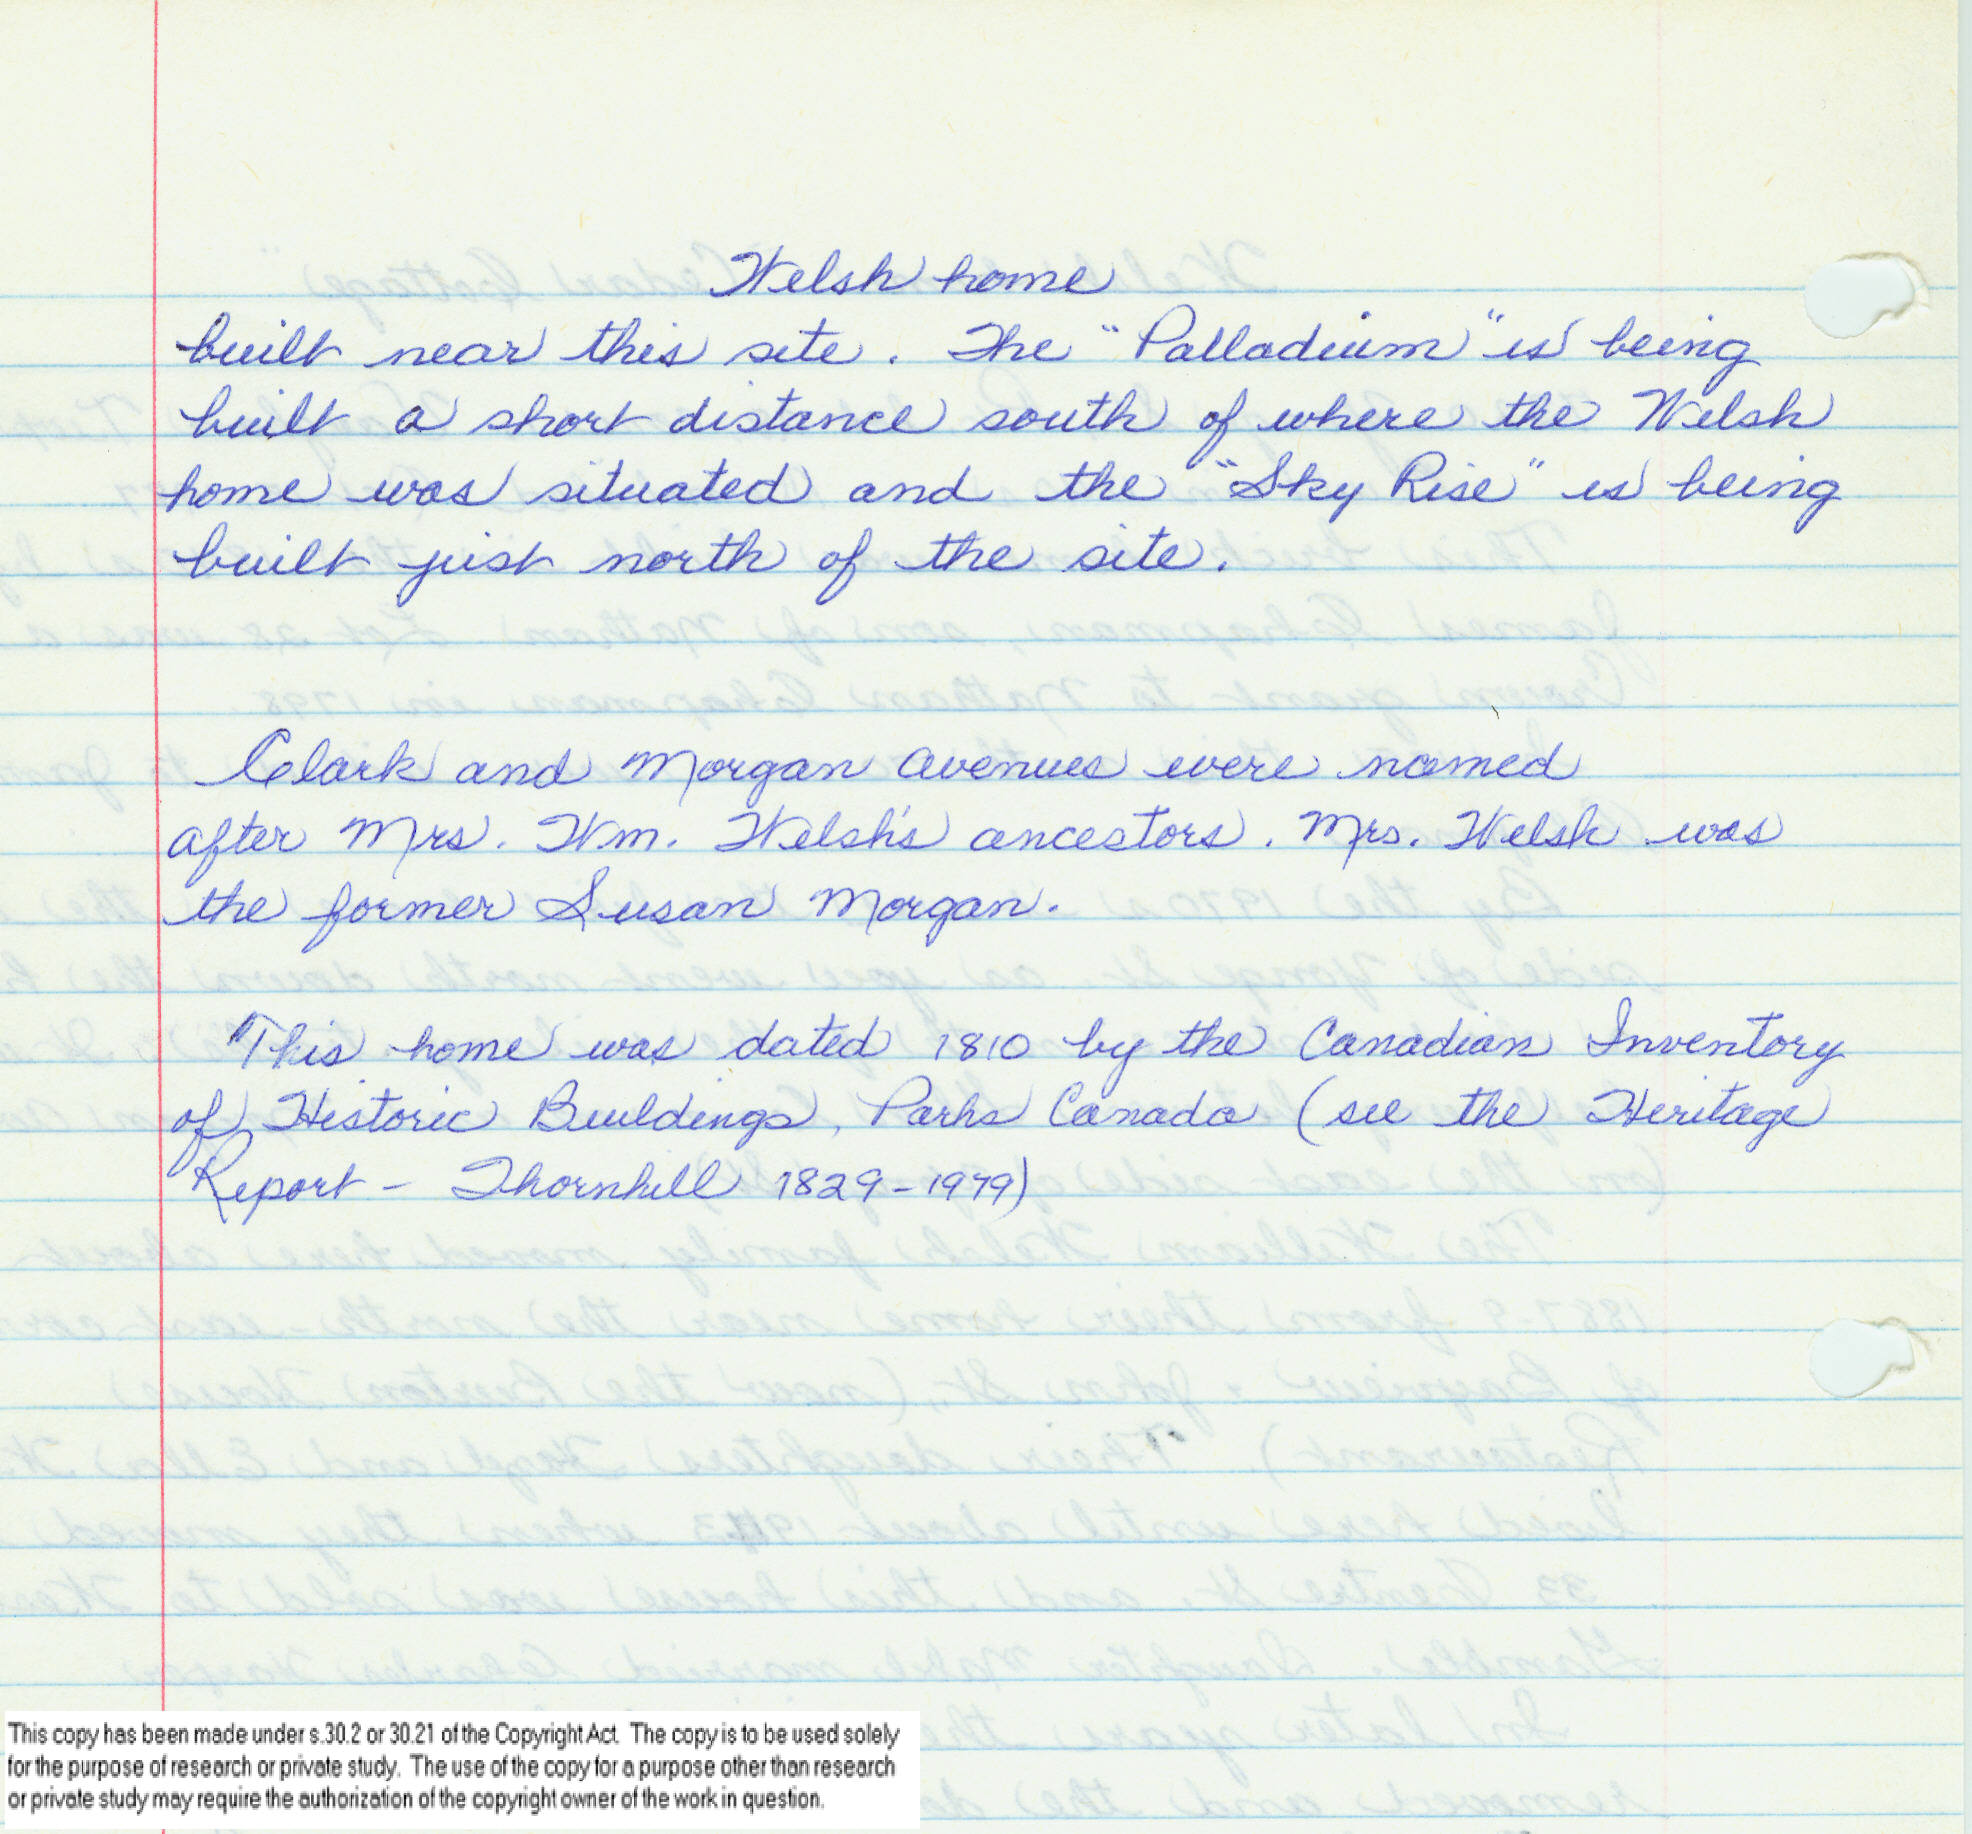 Welsh home
built near this site. The "Palladium" is being
built a short distance south of where the Welsh
home was situated and the "Sky Rise" is being
built just north of the site.
Clark and Morgan Avenues were named
after Mrs. Wm. Welsh's ancestors. Mrs. Welsh was
the former Susan Morgan.
This home was dated 1810 by the Canadian Inventory
of Historic Buildings, Parks Canada (see the Heritage
Report - Thornhill 1829-1979)
This copy has been made under s.30.2 or 30.21 of the Copyright Act. The copy is to be used solely
for the purpose of research or private study. The use of the copy for a purpose other than research
or private study may require the authorization of the copyright owner of the work in question.